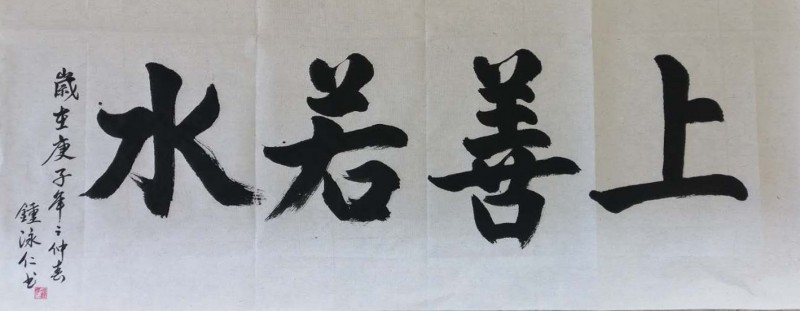 上善若水
歲在庚子年之仲春
鍾泳仁书